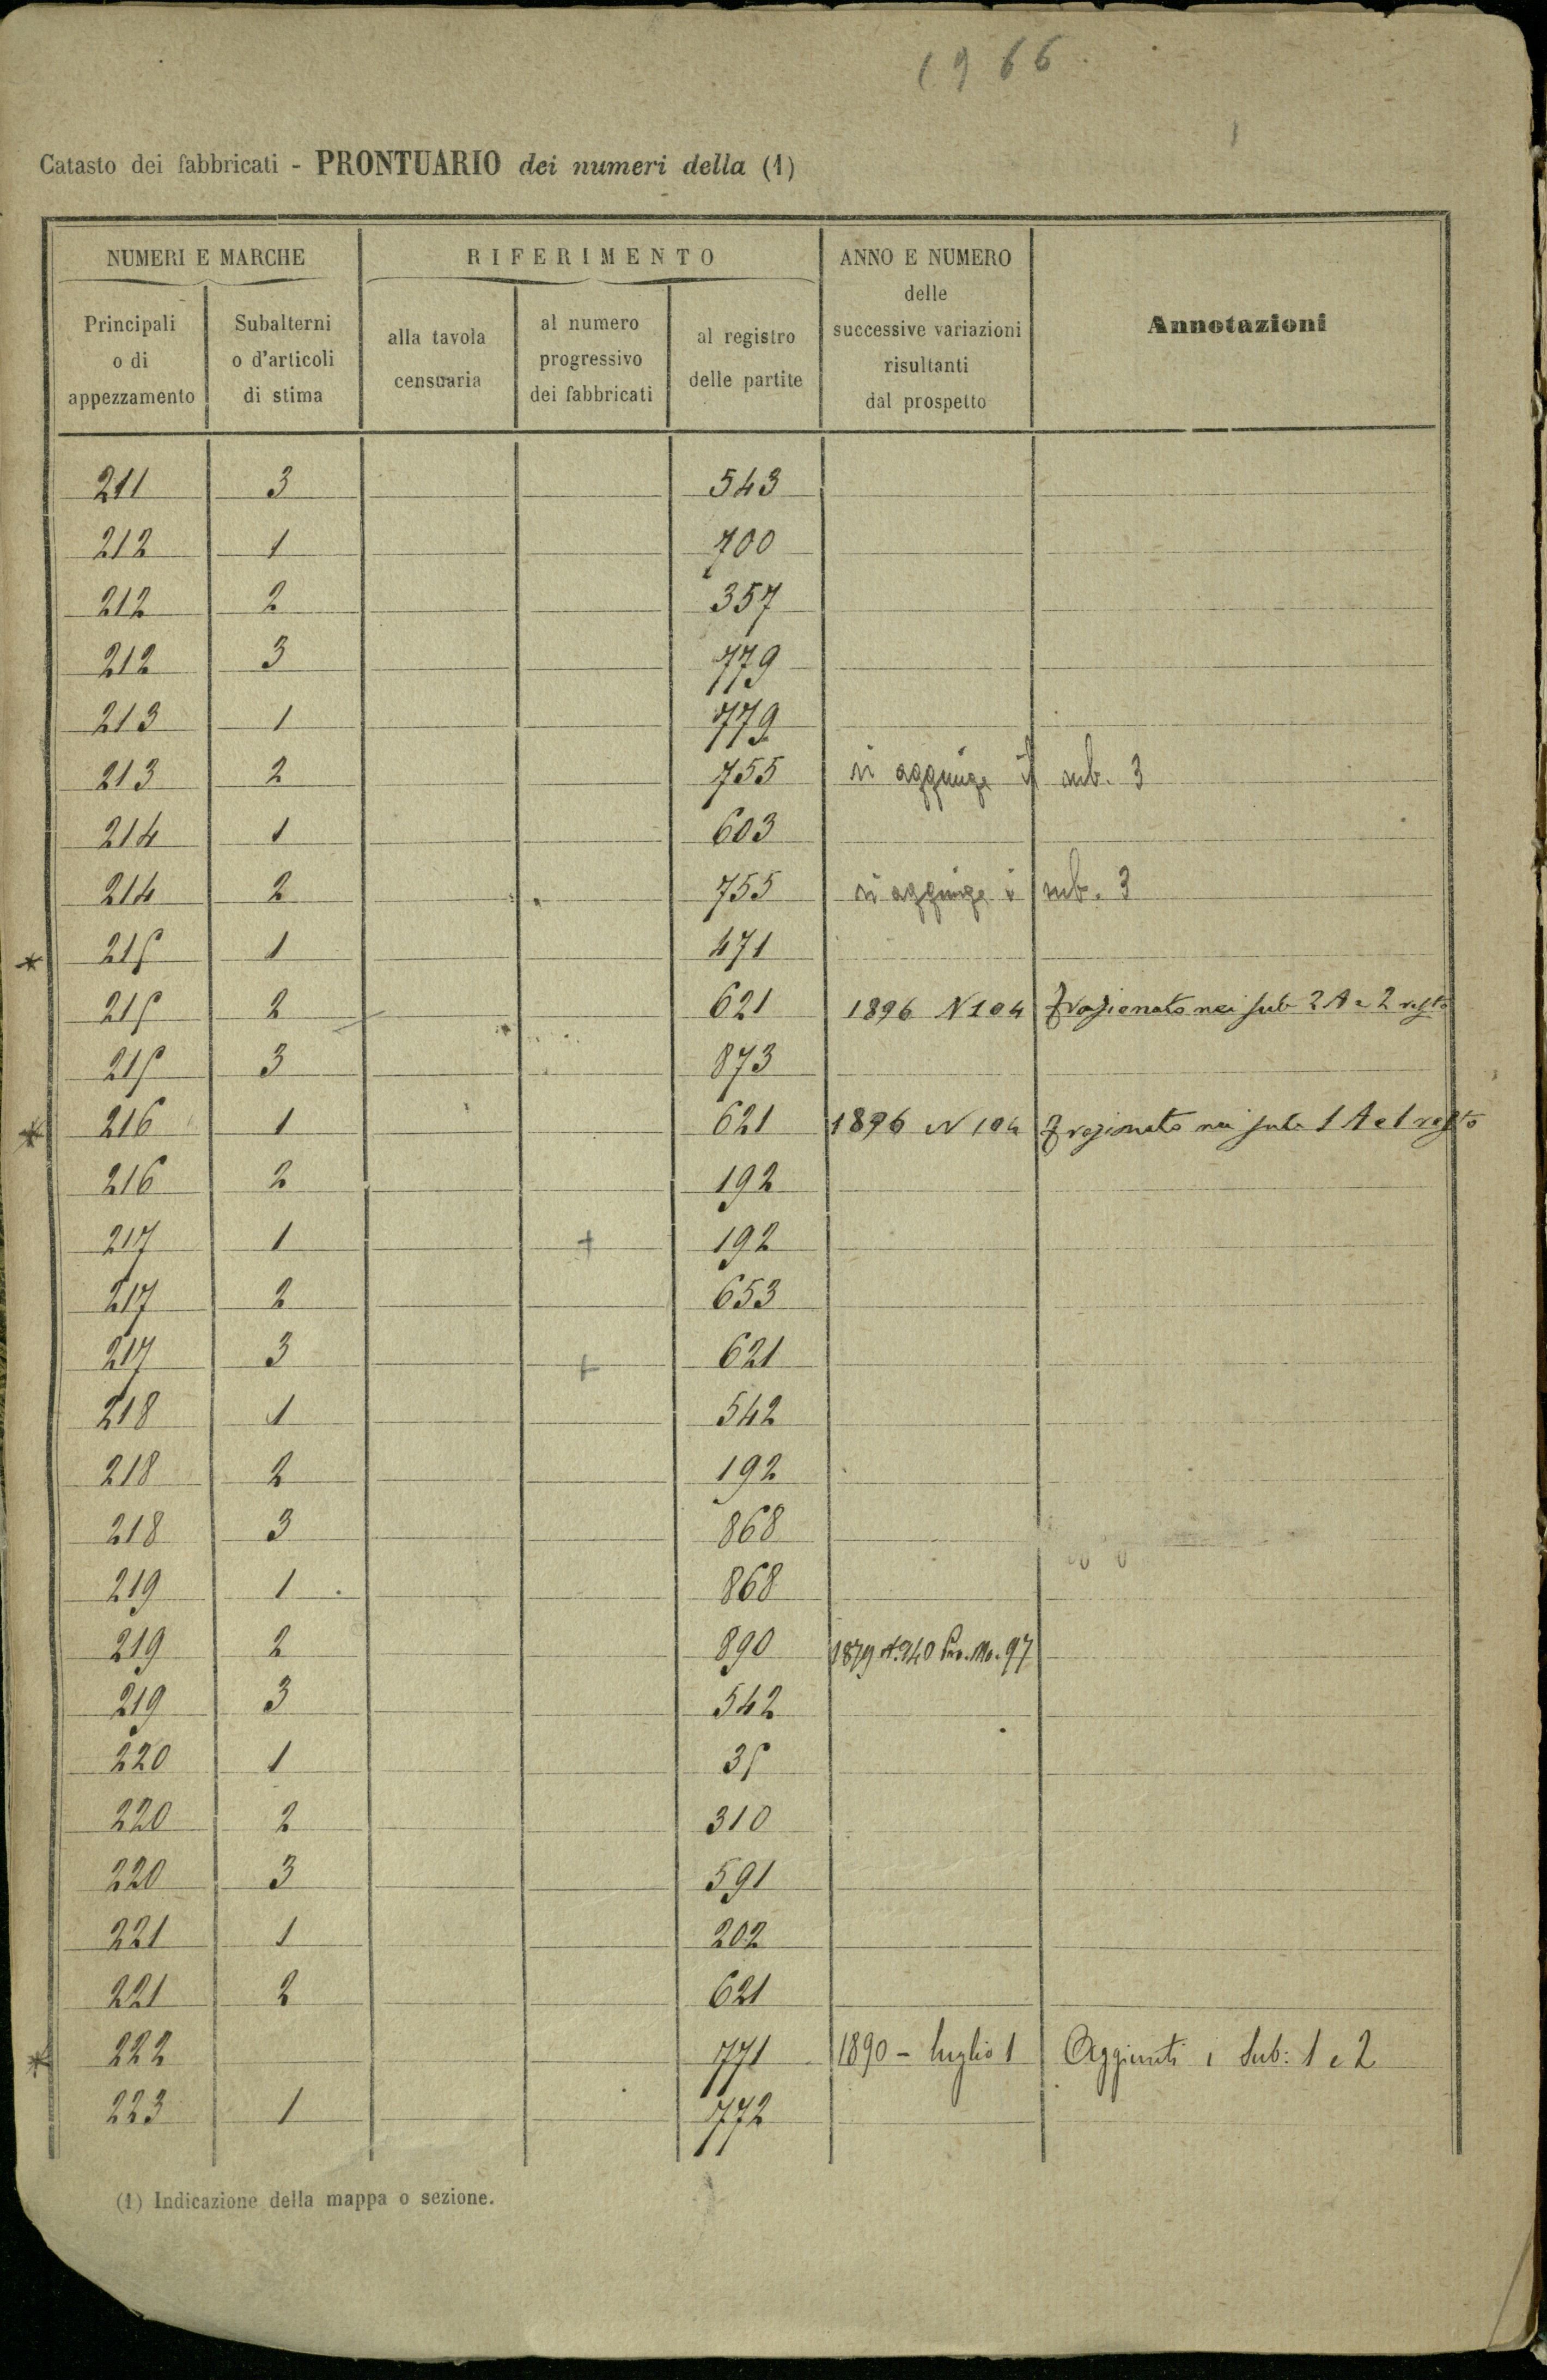 1966
Catasto dei fabbricati - PRONTUARIO dei numeri della (1)
NUMERI E MARCHE
RIFERIMENTO
ANNO E NUMERO
delle
successive variazioni
risultanti
dal prospetto
Annotazioni
Principali
o di
appezzamento
Subalterni
o d'articoli
di stima
alla tavola
censuaria
al numero
progressivo
dei fabbricati
al registro
delle partite
211 3 543
212 1 700
212 2 357
212 3 779
213 1 779
213 2 755 si aggiunge il sub. 3
214 1 603
214 2 755 si aggiunge i sub. 3
* 215 1 471
215 2 621 1896 N 104 frazionato nei sub 2 A e 2 resto
215 3 873
* 216 1 621 1896 N 104 frazionato nei sub 1 A e 1 resto
216 2 192
217 1 + 192
217 2 653
217 3 + 621
218 1 542
218 2 192
218 3 868
219 1 868
219 2 890 1879 940 97
219 3 542
220 1 35
220 2 310
220 3 591
221 1 202
221 2 621
* 222 771 1890 - luglio 1 Aggiunti i Sub: 1 e 2
223 1 772
(1) Indicazione della mappa o sezione.